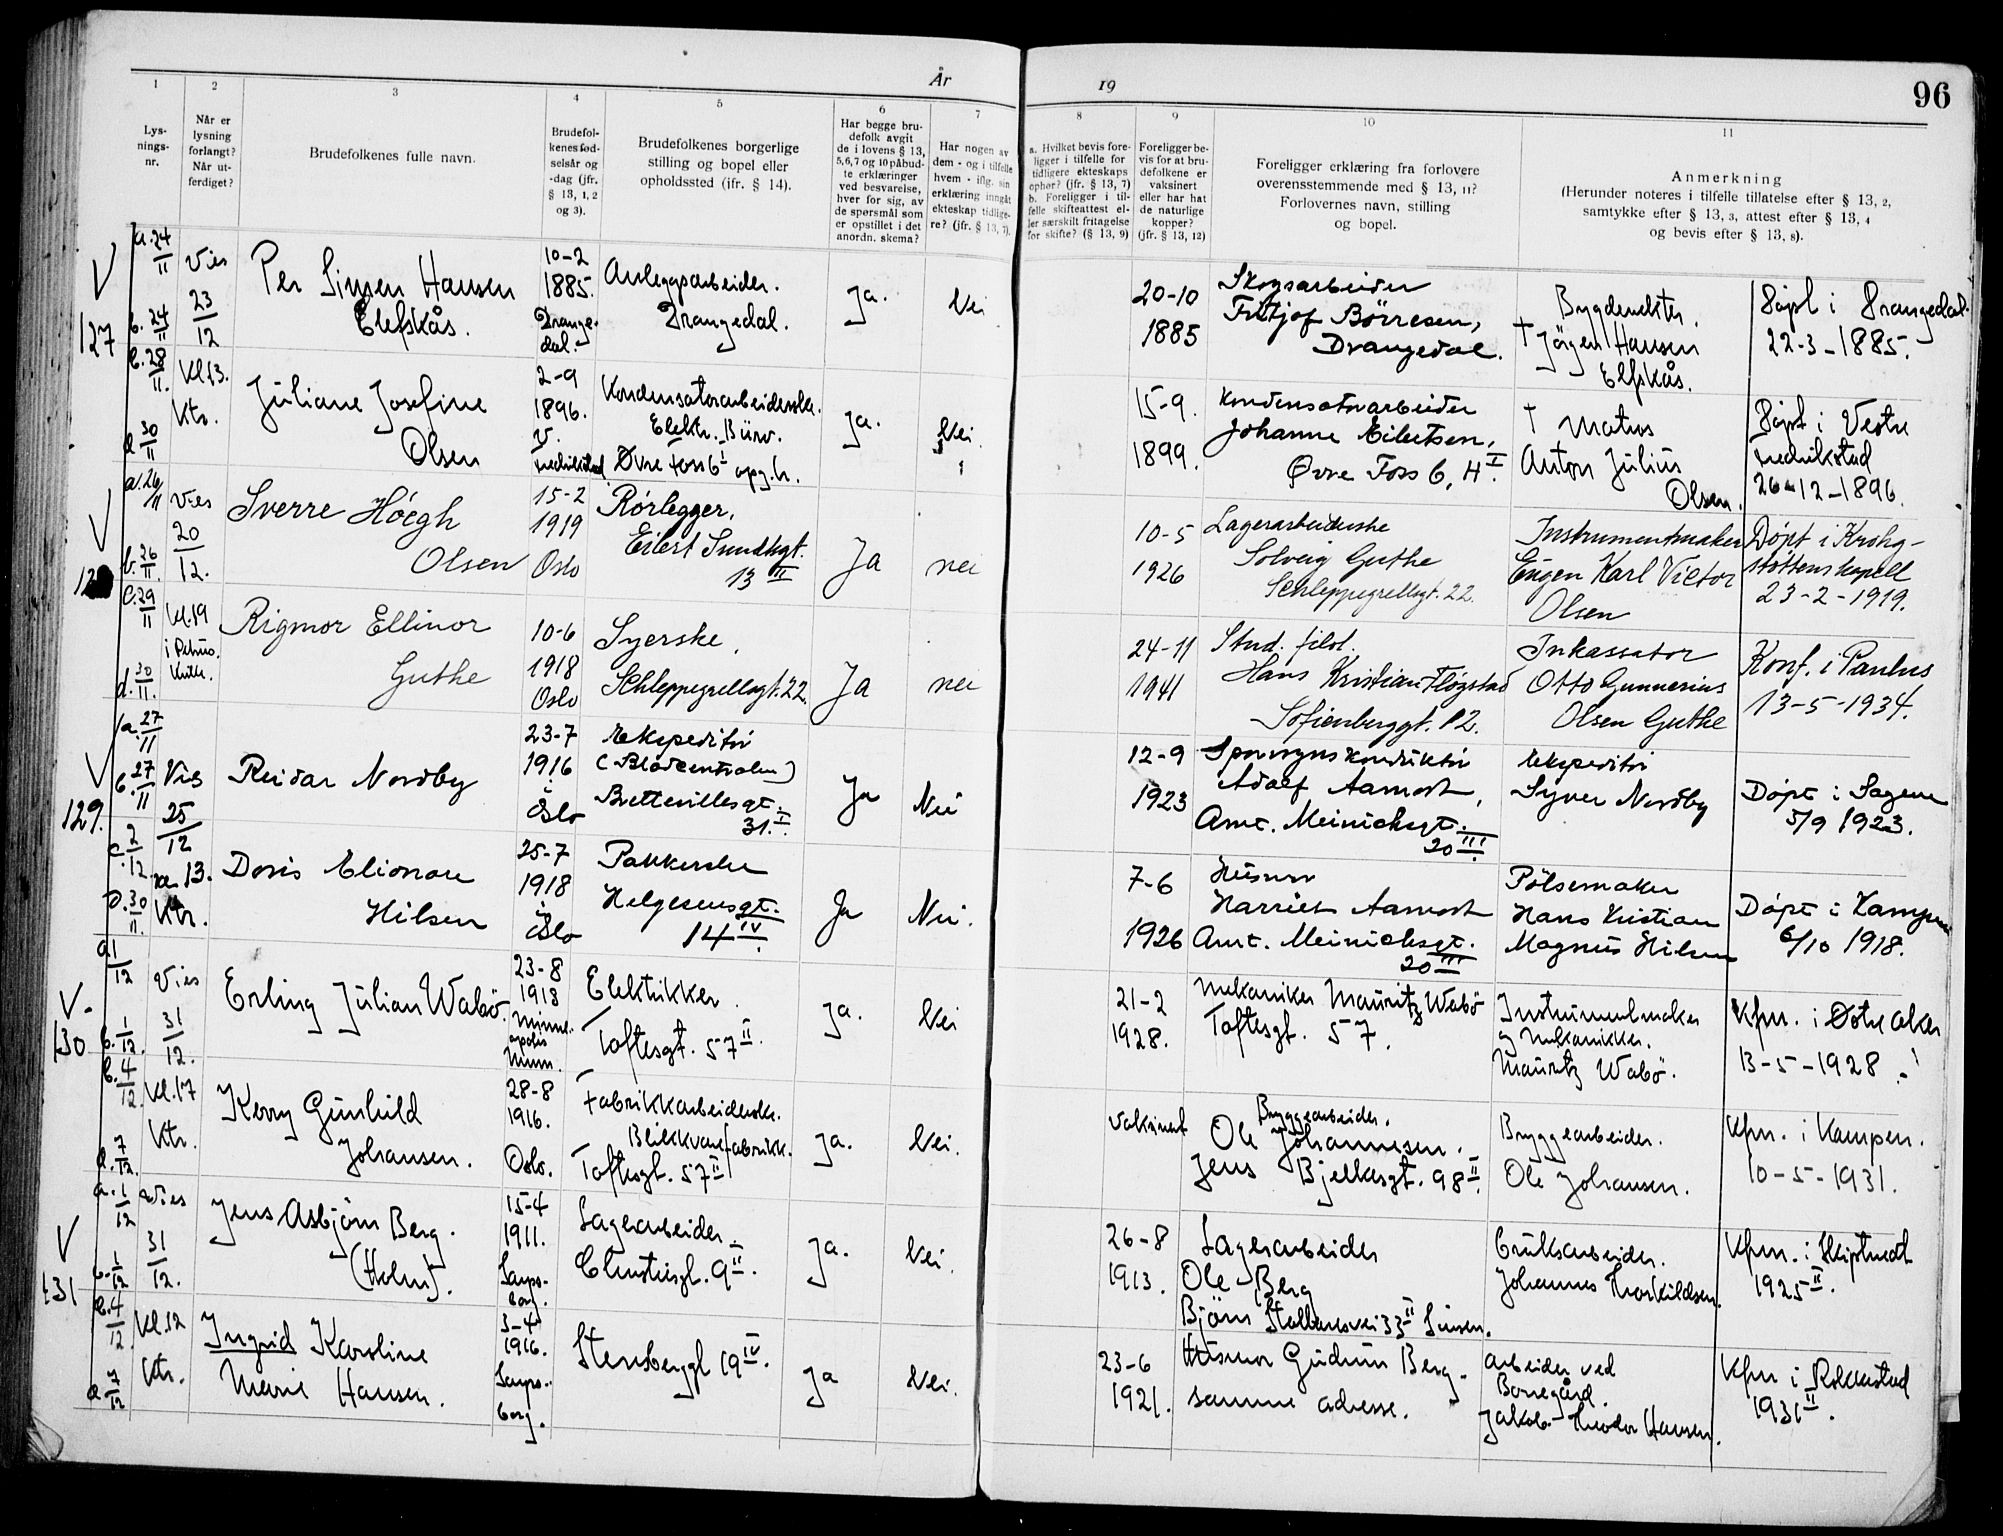 År 19
96
1 2 3 4 5 6 7 8 9 10 11
Lys-
nings-
nr.
Når er
lysning
forlangt?
Når ut-
ferdiget?
Brudefolkenes fulle navn.
Brudefol-
kenes fød-
selsår og
-dag (jfr.
§ 13, 1, 2
og 3).
Brudefolkenes borgerlige
stilling og bopel eller
opholdssted (ifr. § 14).
Har begge bru-
defolk avgit
de i lovens § 13,
5,6,7 og 10 påbud-
te erklæringer
ved besvarelse,
hver for sig, av
de spørsmål som
er opstillet i det
anordn. skema?
Har nogen av
dem - og i tilfelle
hvem - iflg. sin
erklæring inngåt
ekteskap tidlige-
re? (jfr. § 13, 7).
a. Hvilket bevis fore-
ligger i tilfelle for
tidligere ekteskaps
ophør? (jfr. § 13, 7)
b. Foreligger i til-
felle skifteattest el-
ler særskilt fritagelse
for skifte? (§ 13, 9)
Foreligger be-
vis for at bru-
defolkene er
vaksinert
eller har hat
de naturlige
kopper?
(jfr. § 13, 12)
Foreligger erklæring fra forlovere
overensstemmende med § 13, 11?
Forlovernes navn, stilling
og bopel.
Anmerkning
(Herunder noteres i tilfelle tillatelse efter § 13, 2,
samtykke efter § 13, 3, attest efter § 13, 4
og bevis efter § 13, 8).
127
a. 24/11
b. 24/11
c. 28/11.
d 30/11
Vies
23/12
Kl 13.
Ktr.
Per Hansen
Elefskås.
10-2
1885.
Drange-
dal.
Anleggsarbeider.
Drangedal.
Ja.
Nei
20-10
1885
Skogsarbeider
Fritjof Börresen,
Drangedal.
† Jörgen Hansen
Elfskås.
Döpt i Drangedal
22-3-1885.
Juliane Josefine
Olsen
2-9
1896.
V.
Fredrikstad
Kondensatorarbeiderske.
Elektr. Büro.
Øvre Foss 6 I opg. h.
Ja.
Nei.
15-9.
1899.
Kondensatorarbeider
Johanne Eilertsen,
Øvre Foss 6, H I.
† Matros
Anton Julius
Olsen.
Döpt i Vestre
Fredrikstad
26-12-1896.
a. 26/11
b. 26/11
c. 29/11
d. 30/11.
Vies
20/12.
kl. 19
i Petrus.
Sverre Höegh
Olsen
15-2
1919
Oslo
Rörlegger.
Eilert Sundtsgt.
13 III
Ja
nei
10-5
1926
Lagerarbeiderske
Solveig Guthe
Schleppegrellsgt. 22.
Instrumentmaker
Eugen Karl Victor
Olsen
Döpt i Krohg-
støttens kapell
23-2-1919.
Rigmor Ellinor
Guthe
10-6
1918
Oslo
Syerske,
Schleppegrellsgt. 22.
Ja
nei
24-11
1941
Stud. filol.
Hans Kristian Fløgstad
Sofienberggt. 12.
Inkassator
Otto Gunnerius
Olsen Guthe
Konf. i Paulus
13-5-1934.
129.
a. 27/11
b. 27/11
c. 2/12.
d. 30/11.
Vies
25/12
kl 13.
Ktr.
Reidar Nordby
23-7
1916
i
Oslo
Ekspeditør
(Blåsentralen)
Brettevillesgt.
31. II.
Ja
Nei
12-9
1923
Sporvognskonduktör
Adolf Aamodt,
Amt. Meinichsgt.
20 III.
Ekspeditör
Syver Nordby
Döpt i Sagene
5/9 1923.
Doris Elionore
Hilsen
25-7
1918
i
Oslo
Pakkerske
Helgesensgt.
14 IV.
Ja
Nei.
7-6
1926
Husmor
Harriet Aamodt
Amt. Meinichsgt.
20 III
Pölsemaker
Hans Kristian
Magnus Hilsen
Döpt i Kampen
6/10 1918.
130
a 1/12
b. 1/12.
c. 4/12.
d. 7/12.
Vies
31/12.
Kl. 17
Ktr.
Erling Julian Wabö.
23-8
1918
Minne-
apolis
Minn.
Elektrikker.
Toftesgt. 57 II.
Ja.
Nei
21-2
1928.
Mekaniker Mauritz Wabö
Toftesgt. 57.
Instrumentmaker
og mekanikker.
Mauritz Wabö.
Kfm. i Østre Aker
13-5-1928.
Kerry Gunhild
Johansen.
28-8
1916.
Oslo.
Fabrikkarbeiderske.
Blikkvarefabrikk.
Toftesgt. 57 II
Ja.
Nei.
Vaksinert
Bryggearbeider.
Ole Johannesen.
Jens Bjelkesgt. 98 II.
Bryggearbeider.
Ole Johansen.
Kfm. i Kampen.
10-5-1931.
131
a. 1/12
b. 1/12
c. 4/12
d 7/12
Vies
31/12.
Kl. 12
Ktr.
Jens Asbjörn Berg.
(Holm).
15-4
1911.
Sarps-
borg.
Lagerarbeider.
Christiesgt. 9 II.
Ja.
Nei.
26-8
1913.
Lagerarbeider
Ole Berg
Björn Stallaresvei 33 II Sinsen.
Bruksarbeider.
Johannes Thorkildsen.
Kfm. i Skiptvedt
1925 II.
Ingrid Karoline
Marie Hansen.
3-4
1916.
Sarps-
borg.
Stensberggt 19 IV.
Ja
Nei.
23-6
1921.
Husmor Gudrun Berg.
samme adresse.
Arbeider ved
Borregård.
Jakob Theodor Hansen.
Kfm i Rolvstad
1931 II.